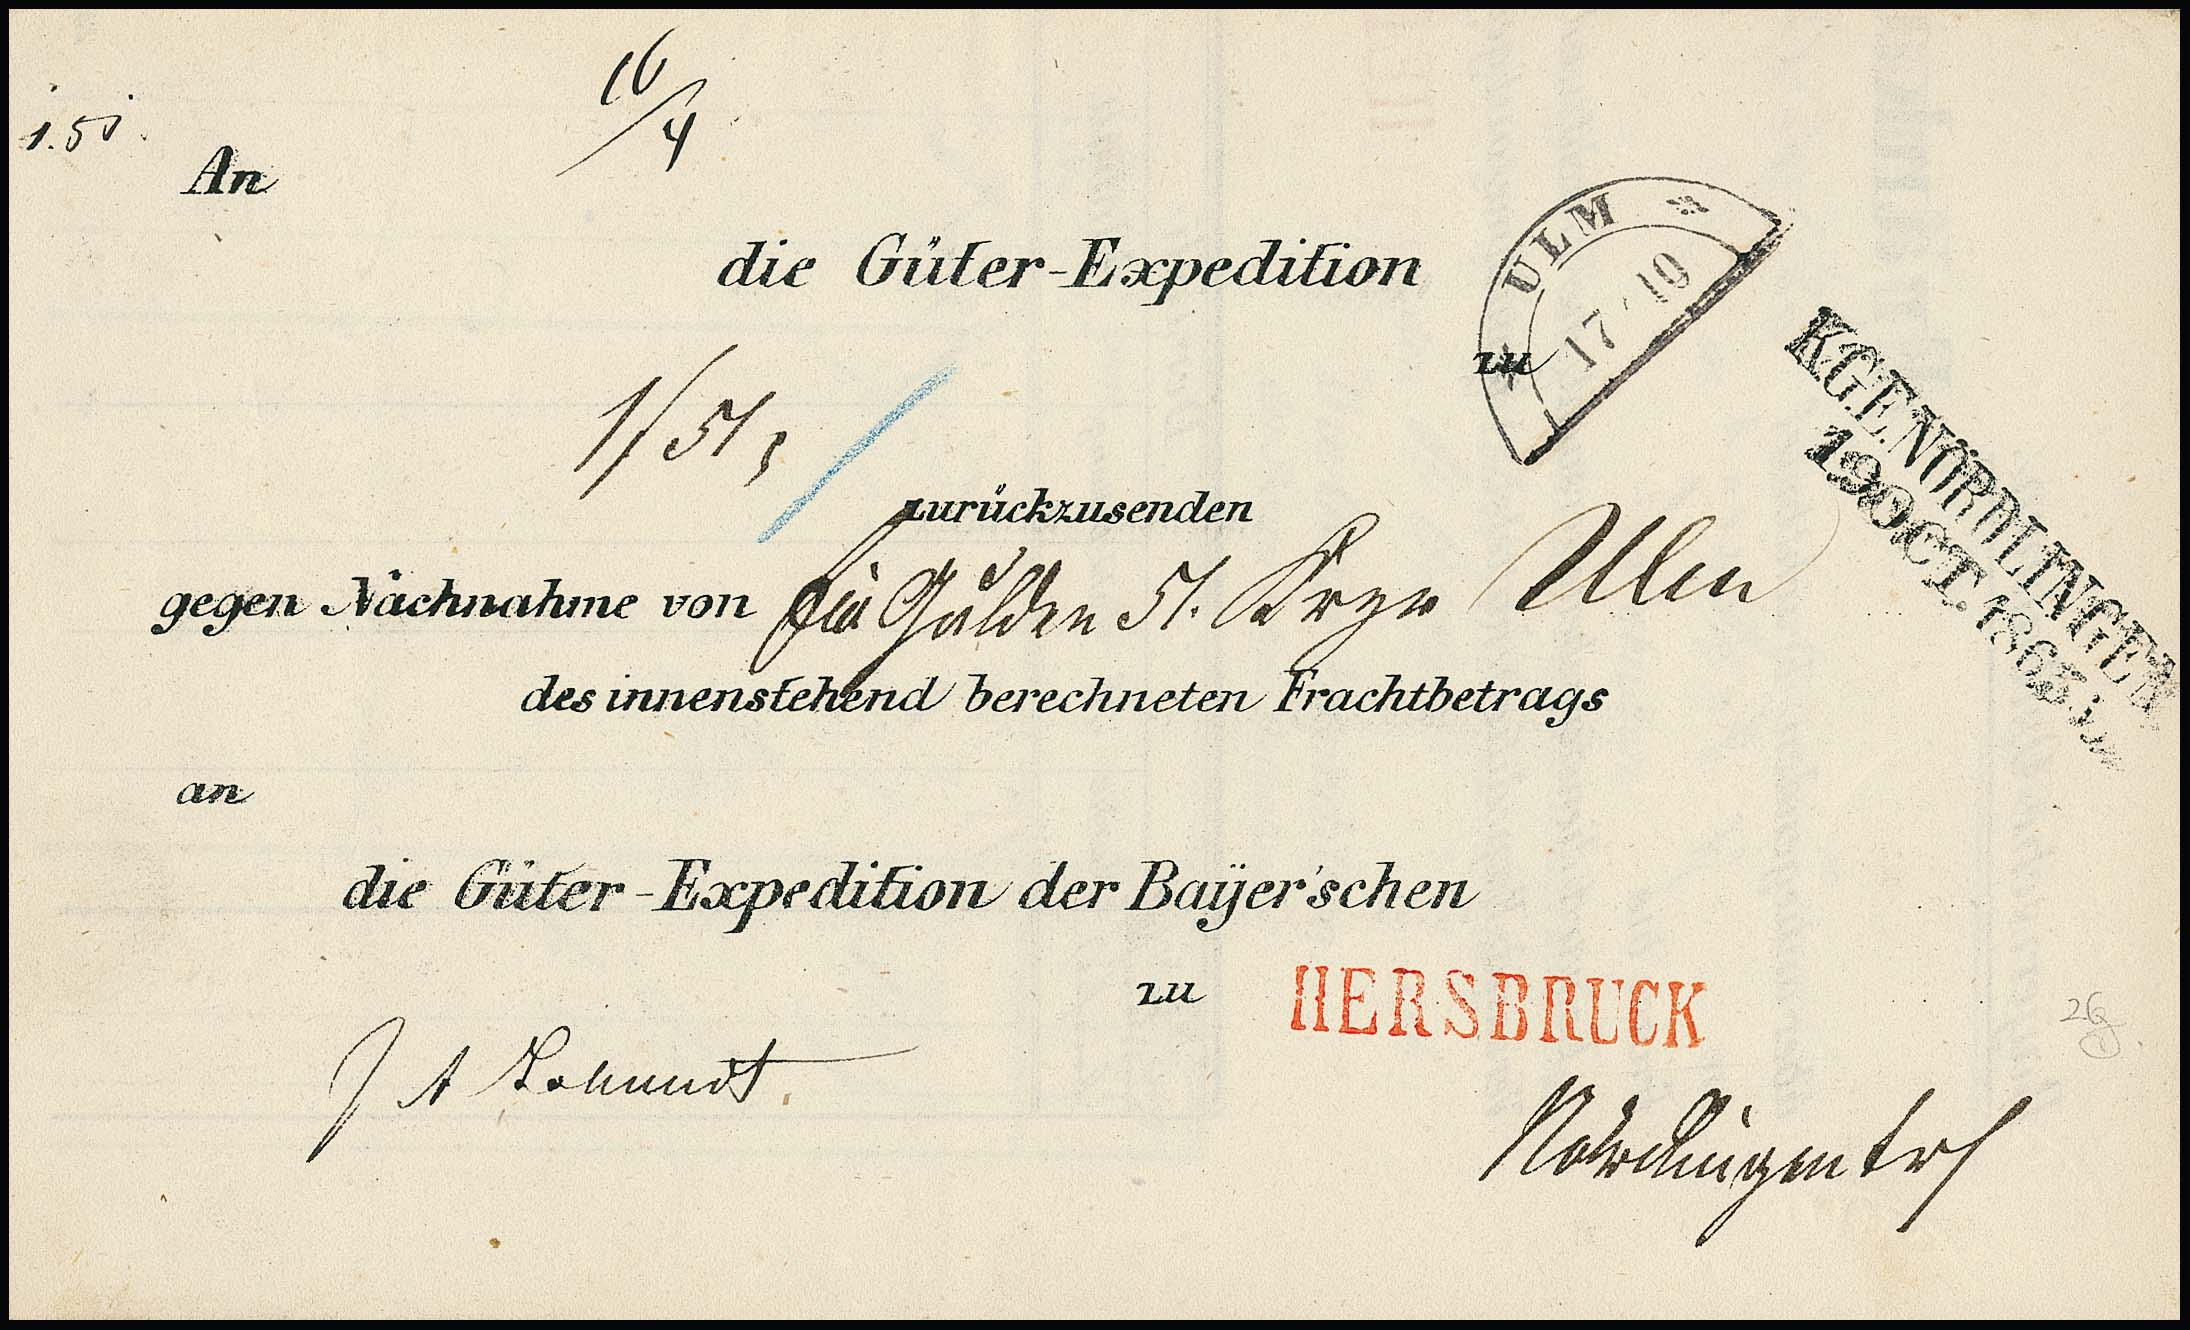 16/4
1.51.
An
die Güter-Expedition
* ULM *
17 10
zu
K.G.E. NÖRDLINGEN
19 OCT. 1865
1/51
zurückzusenden
gegen Nachnahme von Ein Gulden 51. Krzr Ulm
des innenstehend berechneten Frachtbetrags
an
die Güter-Expedition der Baÿer'schen
zu HERSBRUCK
J A Schmidt.
Nördlingen trs
26